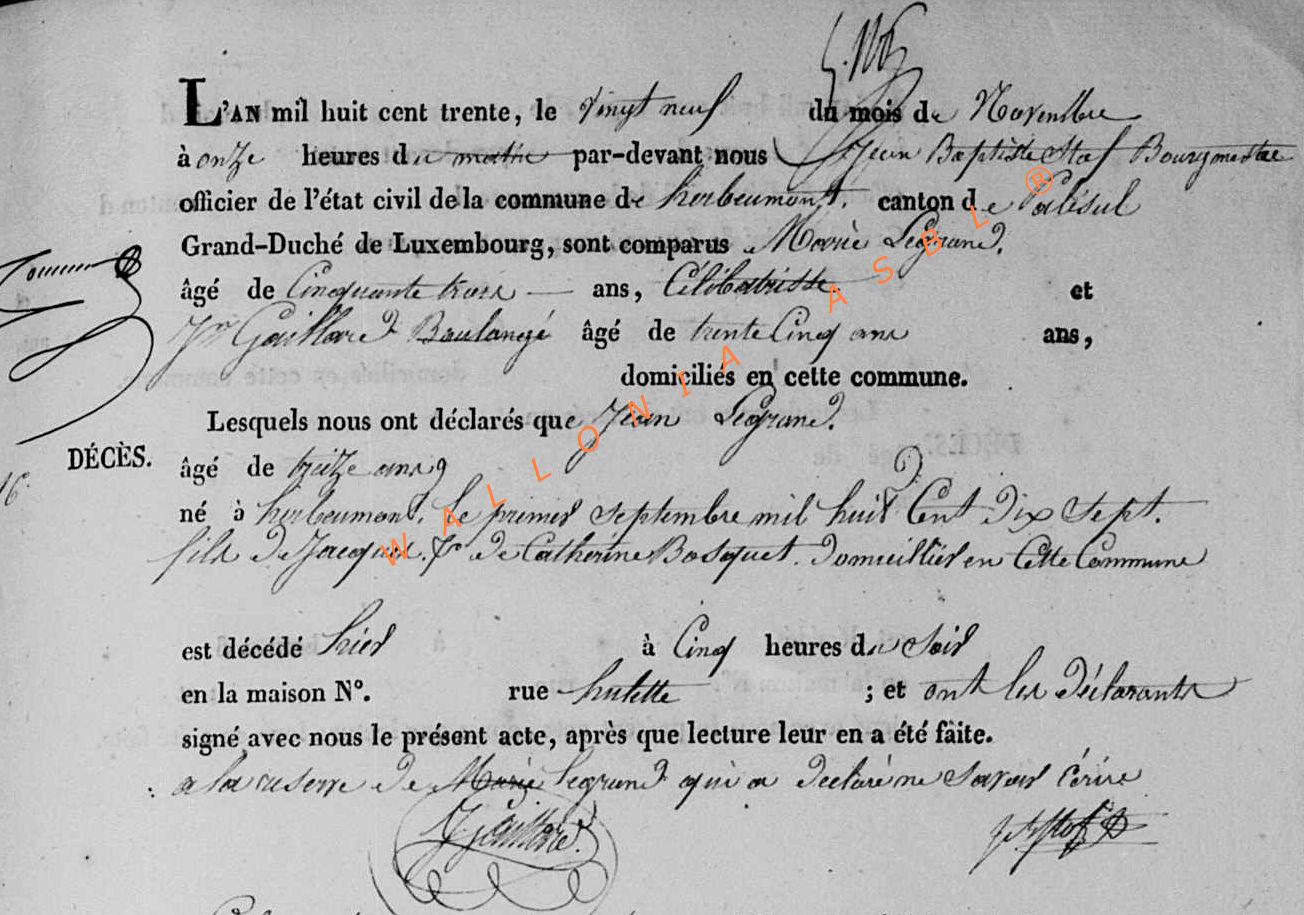 L'AN mil huit cent trente, le vingt neuf du mois de Novembre
à onze heures du matin par-devant nous Jean Baptiste Staf Bourgmestre
officier de l'état civil de la commune de herbeumont. canton de Palisul
Grand-Duché de Luxembourg, sont comparus Marie Legrand,
âgé de Cinquante trois — ans, Célibatrisse et
Jn Gaillard Boulangé âgé de trente Cinq ans ans,
domiciliés en cette commune.
Lesquels nous ont déclarés que Jean Legrand.
DÉCÈS.
âgé de treize ans
né à herbeumont. le premier Septembre mil huit Cent Dix Sept.
fils De Jacques. & De Catherine Bosquet. Domiciliés en Cette Commune
est décédé hier à Cinq heures du Soir
en la maison N°. rue hulette ; et ont les Déclarants
signé avec nous le présent acte, après que lecture leur en a été faite.
a la reserve de Marie legrand qui a Déclaré ne Savoir Ecrire
J Gaillard
WALLONIA ASBL ®